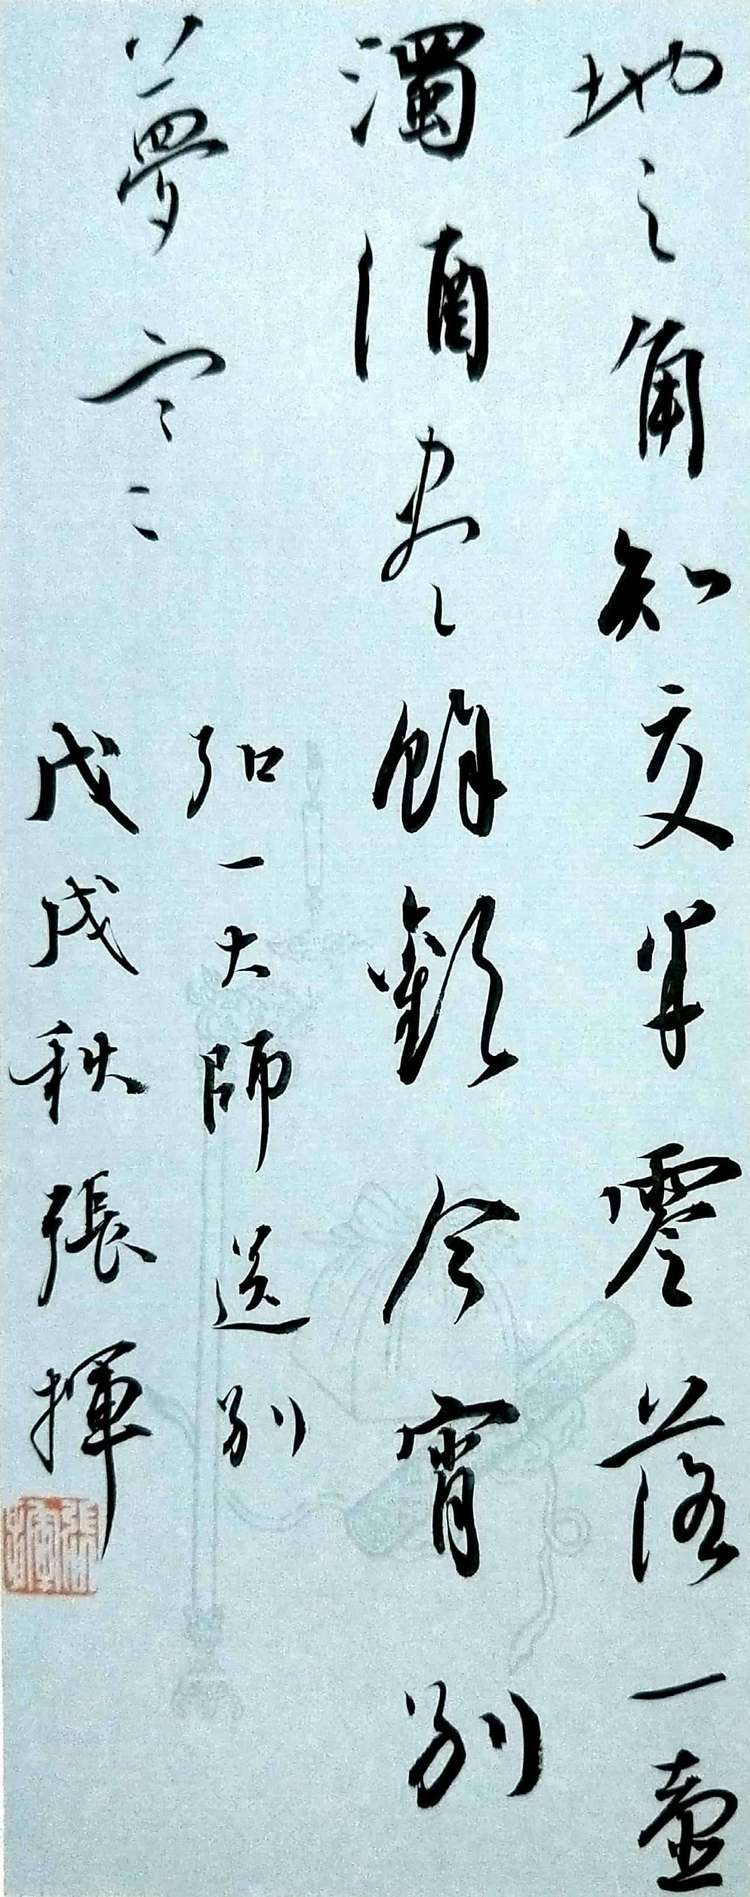 地之角知交半零落一壺
濁酒盡餘歡今宵別
夢寒
弘一大師送別
戊戌秋張揮